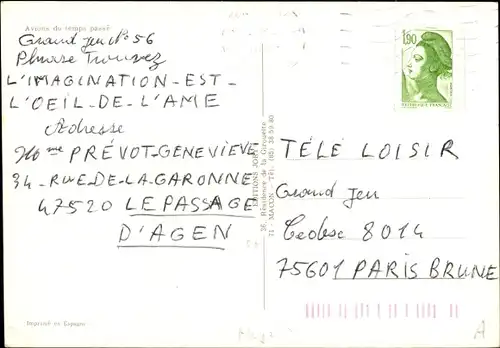 Avions du temps passé
Grand jeu N° 56
Phrase Trouvez
L'IMAGINATION-EST-
L'OEIL-DE-L'AME
Adresse
Mme PRÉVOT-GENEVIÈVE
94-RUE-DE-LA-GARONNE
47520 LE PASSAGE
D'AGEN
Imprimé en Espagne
EDITIONS JOBY
36, Résidence de la Coupée
71 - MACON - Tél. (85) 38 59 80
1,90
TÉLÉ LOISIR
Grand Jeu
Cedex 8014
75601 PARIS BRUNE
A